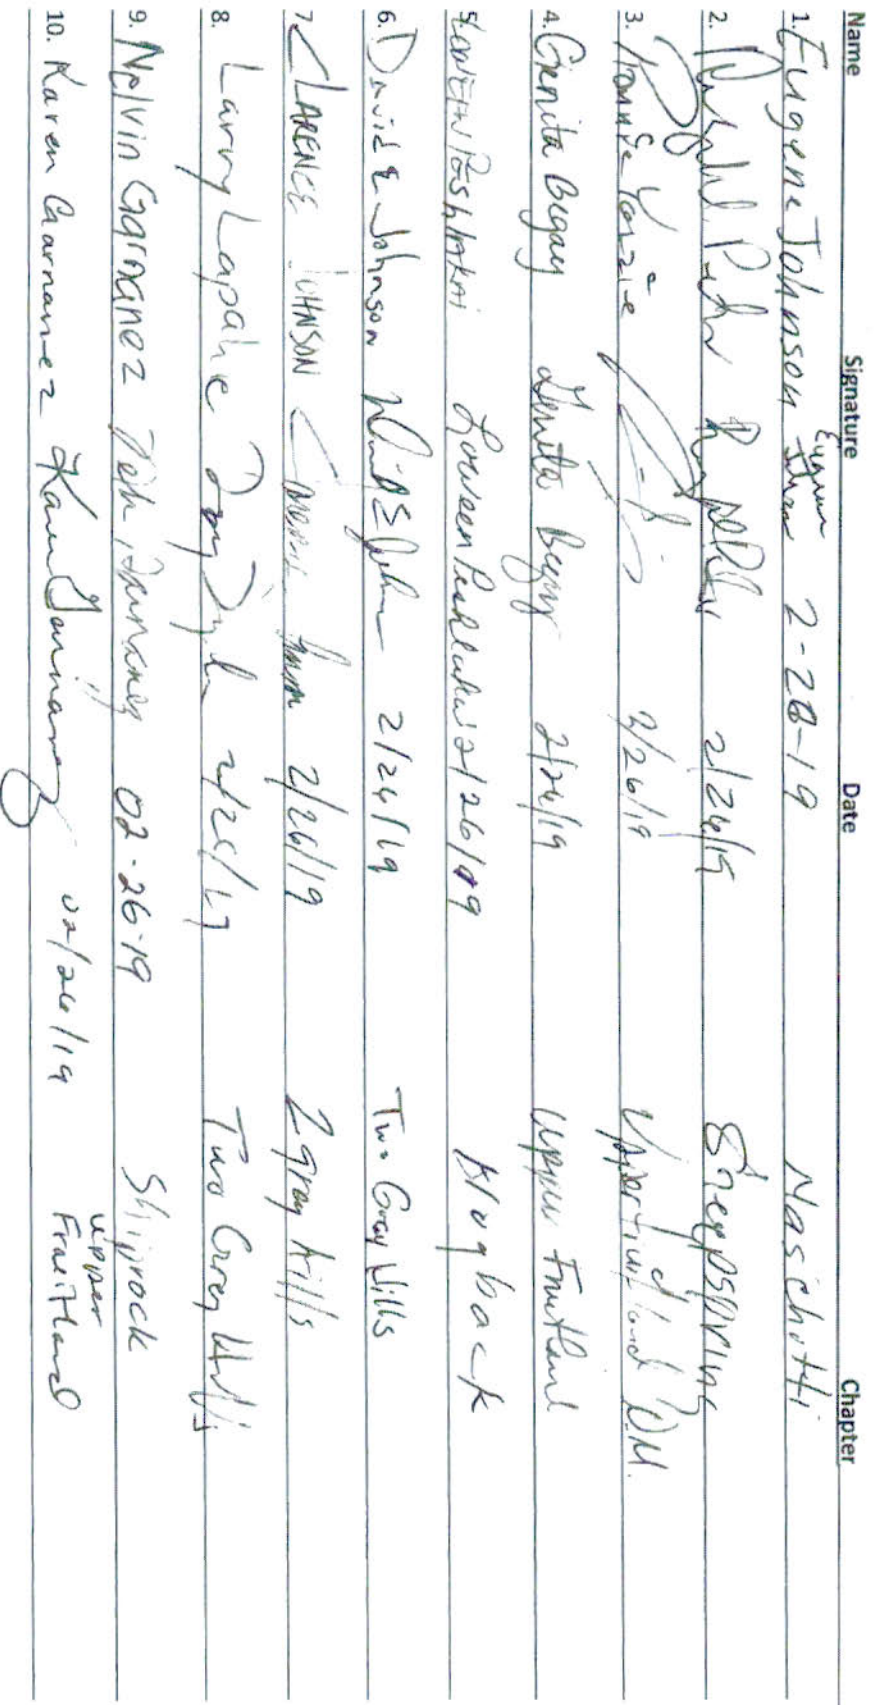 Name Signature Date Chapter
1. Eugene Johnson Eugene 2-26-19 Naschitti
2. 2/26/19 Sheepspring
3. Yazzie 2/26/19 Upper Fruitland N.M.
4. Genita Begay Genita Begay 2/26/19 Upper Fruitland
5. Loween Peshlakai 2/26/19 Hogback
6. David E Johnson David E John 2/26/19 Two Gray Hills
7. CLARENCE JOHNSON 2/26/19 2 gray hills
8. Larry Lapahie 2/26/19 Two Grey Hills
9. Melvin Garnanez 02-26-19 Shiprock
10. Karen Garnanez 02/26/19 Upper Fruitland